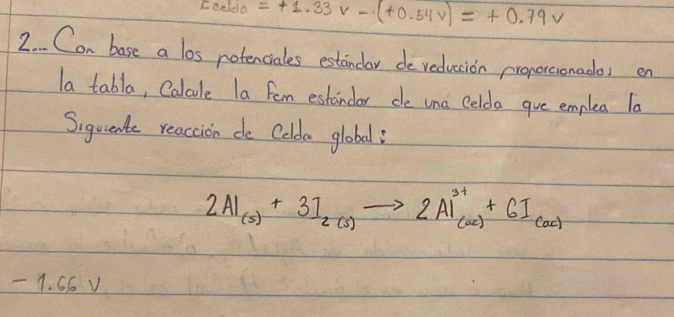 Ecelda = +1.33 v - (+0.54v) = + 0.79 v
2.- Con base a los potenciales estándar de reducción proporcionados en
la tabla, Calcule la fem estándar de una celda que emplea la
Siguiente reacción de Celda global:
2Al(s) + 3I2(s) → 2Al3+(ac) + 6I(ac)
- 1.66 V